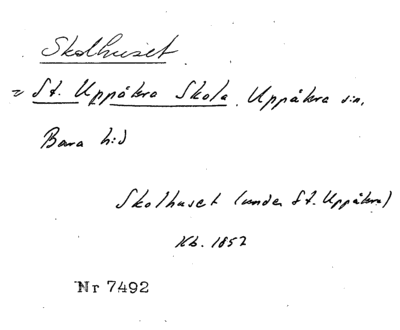 Skolhuset
= St. Uppåkra Skola, Uppåkra sn,
Bara h:d
Skolhuset (under St. Uppåkra)
Kb. 1852
Nr 7492